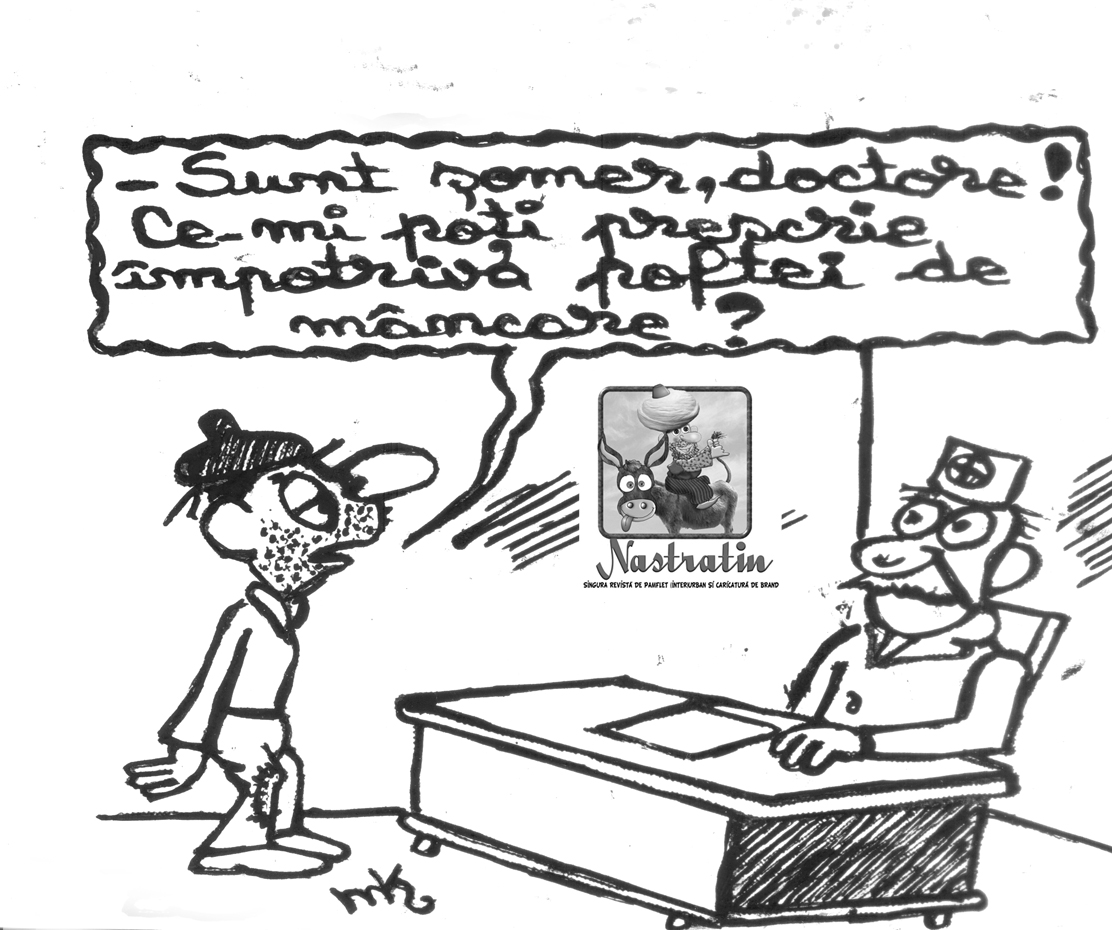 - Sunt şomer, doctore!
Ce-mi poţi prescrie
împotriva poftei de
mâncare?
Nastratin
SINGURA REVISTĂ DE PAMFLET INTERURBAN SI CARICATURĂ DE BRAND